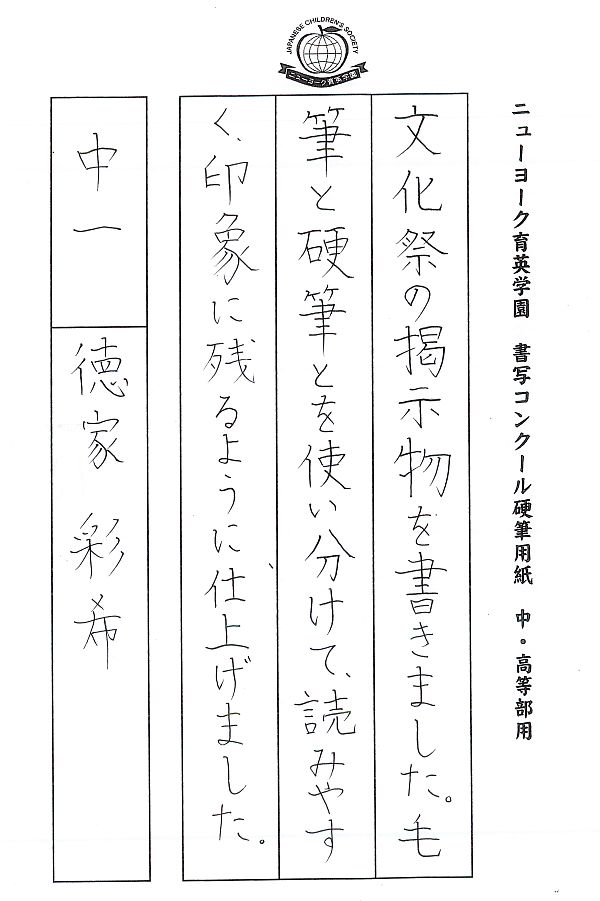 JAPANESE CHILDREN'S SOCIETY
ニューヨーク育英学園
ニューヨーク育英学園　書写コンクール硬筆用紙　中・高等部用
文化祭の掲示物を書きました。毛
筆と硬筆とを使い分けて、読みやす
く、印象に残るように、仕上げました。
中一　徳家　彩希